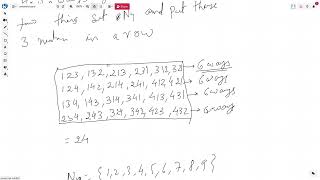 from this set N4 and put those
3 number in a row
123, 132, 213, 231, 312, 321 → 6 ways
124, 142, 214, 241, 412, 421 → 6 ways
134, 143, 314, 341, 413, 431 → 6 ways
234, 243, 324, 342, 423, 432 → 6 ways
= 24
N9 = {1, 2, 3, 4, 5, 6, 7, 8, 9}